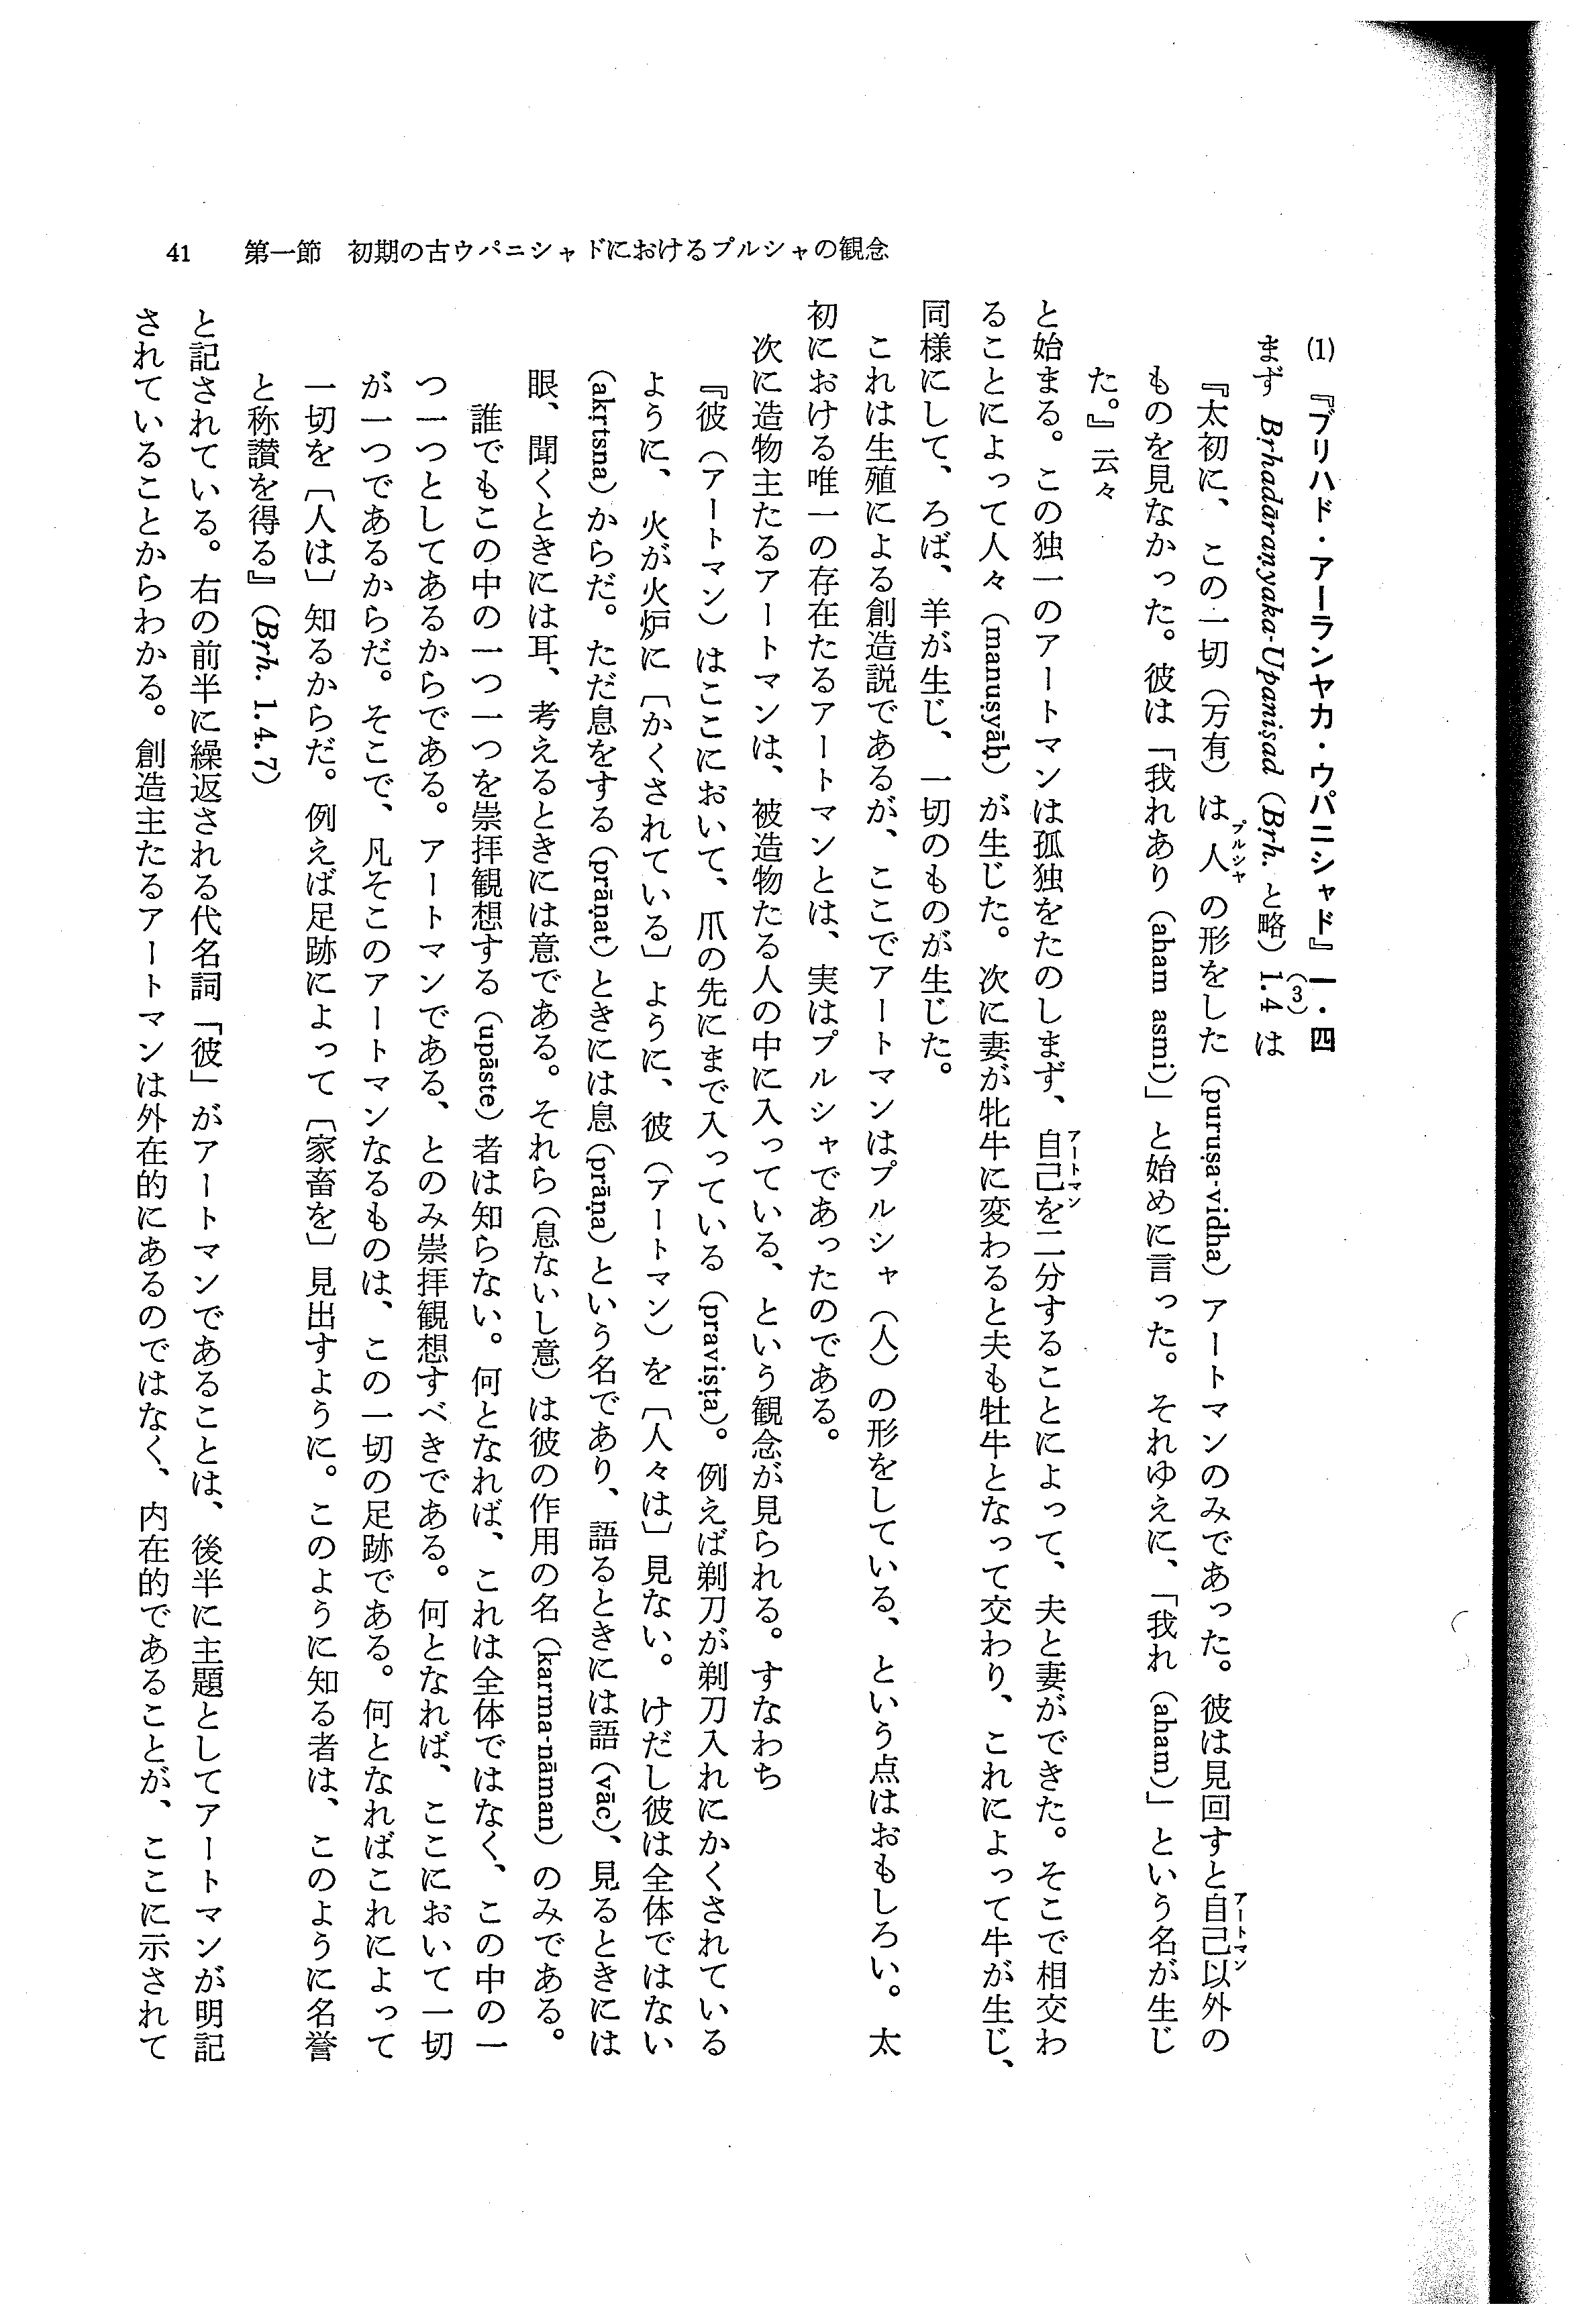 41 第一節 初期の古ウパニシャドにおけるプルシャの観念
(1) 『ブリハド・アーランヤカ・ウパニシャド』一・四
まず Bṛhadāraṇyaka-Upaniṣad (Bṛh. と略) 1.4 は(3)
『太初に、この一切（万有）は人プルシャの形をした（puruṣa-vidha）アートマンのみであった。彼は見回すと自己アートマン以外の
ものを見なかった。彼は「我れあり（aham asmi）」と始めに言った。それゆえに、「我れ（aham）」という名が生じ
た。』云々
と始まる。この独一のアートマンは孤独をたのしまず、自己アートマンを二分することによって、夫と妻ができた。そこで相交わ
ることによって人々（manuṣyāḥ）が生じた。次に妻が牝牛に変わると夫も牡牛となって交わり、これによって牛が生じ、
同様にして、ろば、羊が生じ、一切のものが生じた。
これは生殖による創造説であるが、ここでアートマンはプルシャ（人）の形をしている、という点はおもしろい。太
初における唯一の存在たるアートマンとは、実はプルシャであったのである。
次に造物主たるアートマンは、被造物たる人の中に入っている、という観念が見られる。すなわち
『彼（アートマン）はここにおいて、爪の先にまで入っている（praviṣṭa）。例えば剃刀が剃刀入れにかくされている
ように、火が火炉に〔かくされている〕ように、彼（アートマン）を〔人々は〕見ない。けだし彼は全体ではない
（akṛtsna）からだ。ただ息をする（prāṇat）ときには息（prāṇa）という名であり、語るときには語（vāc）、見るときには
眼、聞くときには耳、考えるときには意である。それら（息ないし意）は彼の作用の名（karma-nāman）のみである。
誰でもこの中の一つ一つを崇拝観想する（upāste）者は知らない。何となれば、これは全体ではなく、この中の一
つ一つとしてあるからである。アートマンである、とのみ崇拝観想すべきである。何となれば、ここにおいて一切
が一つであるからだ。そこで、凡そこのアートマンなるものは、この一切の足跡である。何となればこれによって
一切を〔人は〕知るからだ。例えば足跡によって〔家畜を〕見出すように。このように知る者は、このように名誉
と称讃を得る』（Bṛh. 1.4.7）
と記されている。右の前半に繰返される代名詞「彼」がアートマンであることは、後半に主題としてアートマンが明記
されていることからわかる。創造主たるアートマンは外在的にあるのではなく、内在的であることが、ここに示されて